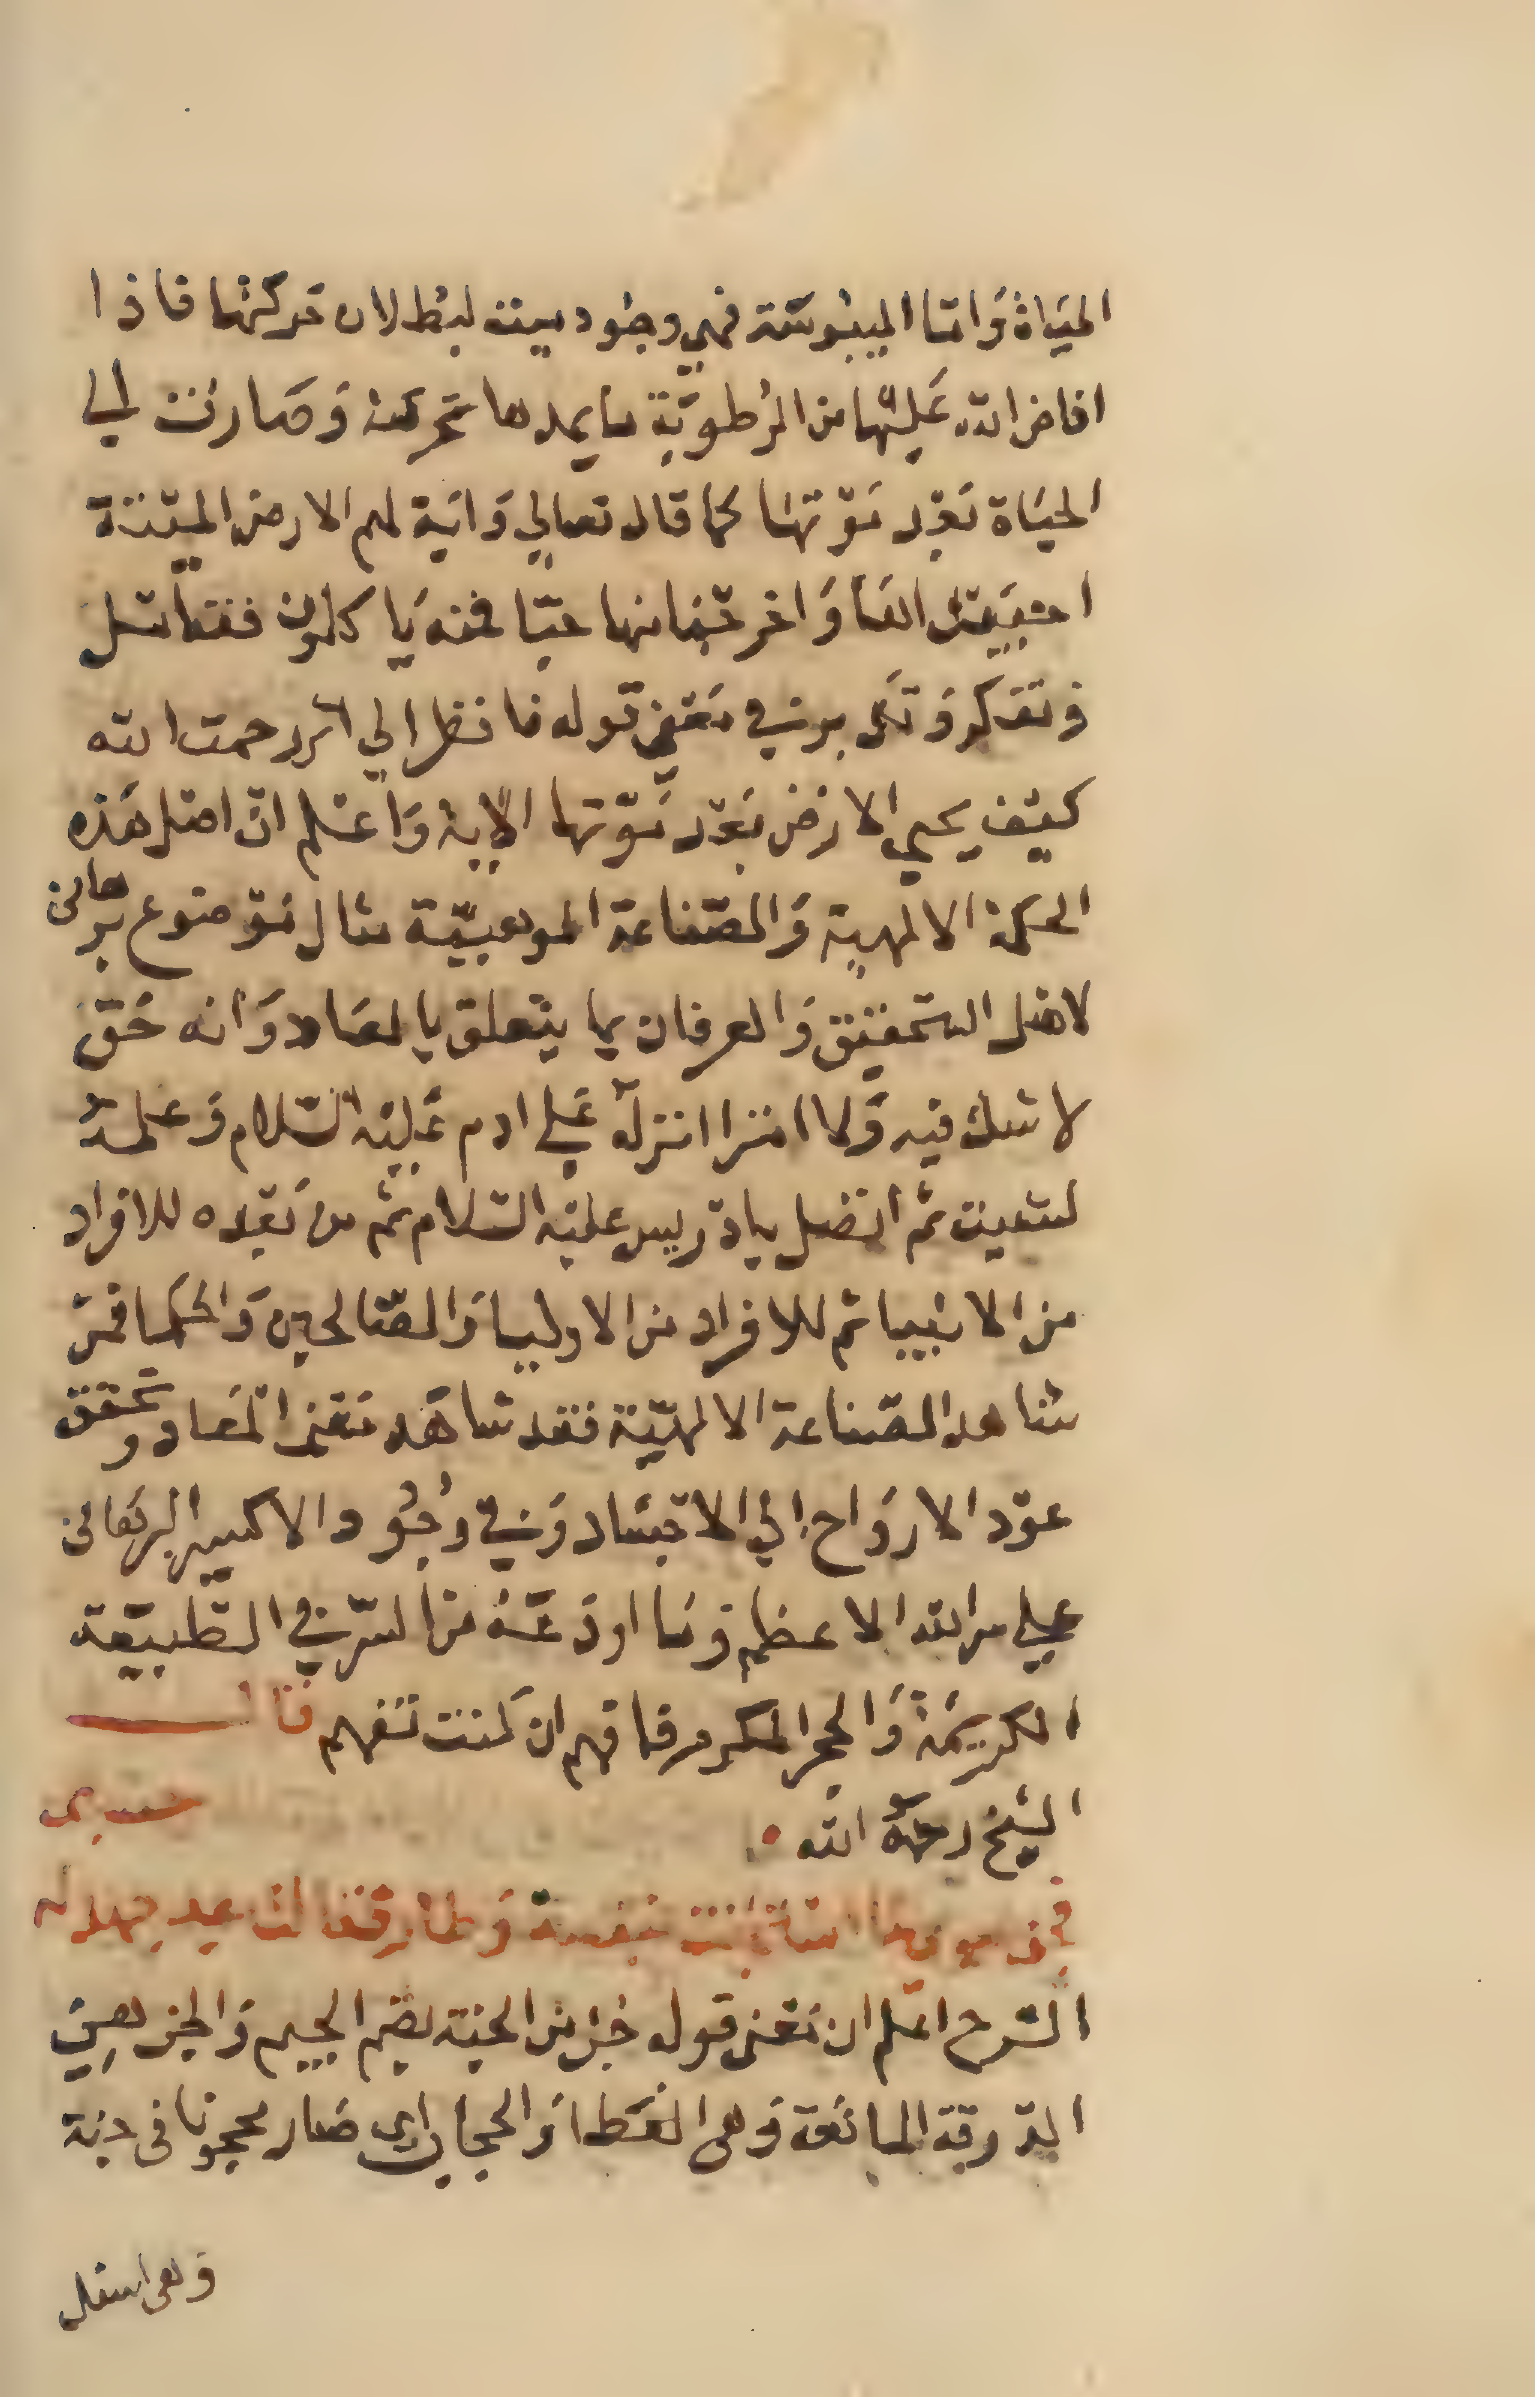 الحياة وَامّا اليبُوسَة فهي وجُود ميتة لبُطلان حَركتْها فاذا
افاض الله عَليْها من الرُطوبَة ما يمدها تحركت وَصَارتْ الي
الحيَاة بَعْد مَوْتها كما قال تعالي وَايَة لهم الارض الميْتة
احييناها وَاخرجْنا منها حبّا فمنه يَاكلون فتامّل
وَتفَكر وَتَدبر في مَعْني قوله فانظر الي اثر رحمت الله
كيْف يحيي الارْض بَعْد مَوْتها الاية وَاعْلم انّ اصْل هَذه
الحكمة الالهية وَالصّناعة الموهبيّة مثال مَوْضوع برهانى
لاهْل التحقيق وَالعرفان بما يتعلق بالمعَاد وَانه حَق
لا شك فيه وَلا امترا انزله علي ادم عَليْه السّلام وَعلمه
لشيث ثم اتصْل بادْريس عليْه السّلام ثم من بَعْده للافراد
من الانبيا ثم للافراد من الاوليا وَالصّالحين وَالحكما فمن
شاهد الصّناعة الالهيّة فقد شاهَد مَعْنى المَعاد وتحقق
عوْد الارْوَاح الي الاجسَاد وَفي وُجُود الاكسير البرهَانى
علي سر الله الاعظم وَمَا اودَعَهُ من السّر في الطبيعَة
الكريمَة وَالحجر المكرم فافهم ان كنت تفهم قال
الشيخ رحمَهُ الله
الشرح اعْلم ان مَعْنى قوله جُن من الجنة بضم الجيم وَالجن هِيَ
الدّرقة المانعَة وَهى الغَطا وَالحجاب اى صَار محجوبا فى جنة
وَهى اسفل